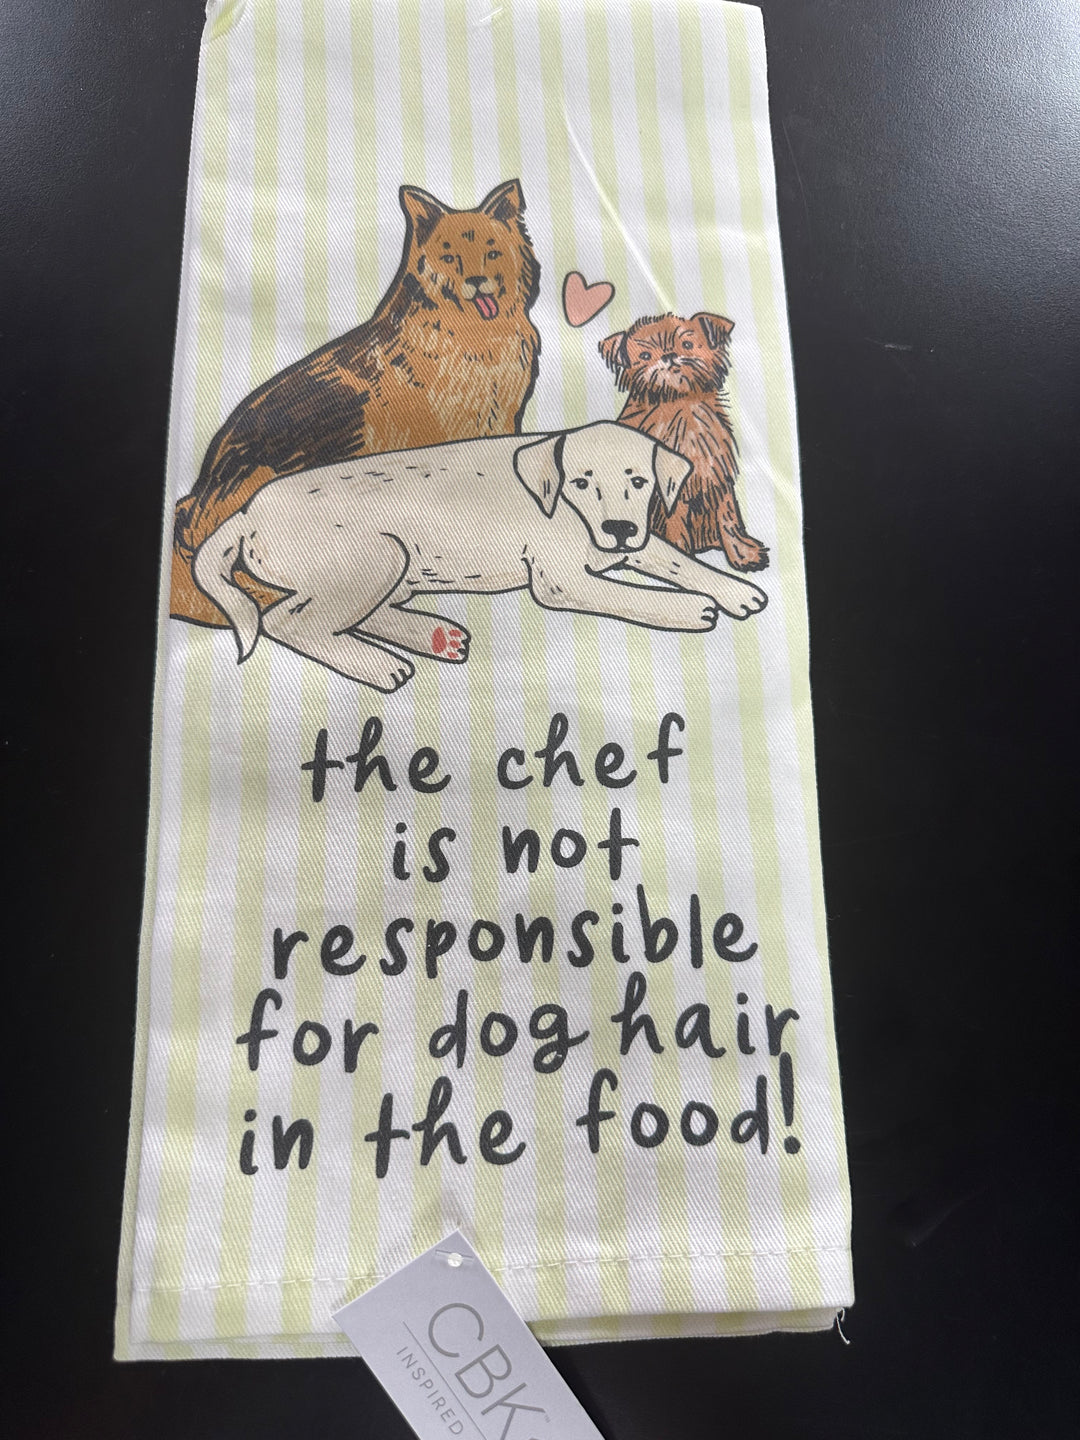 the chef
is not
responsible
for dog hair
in the food!
CBK™
INSPIRED